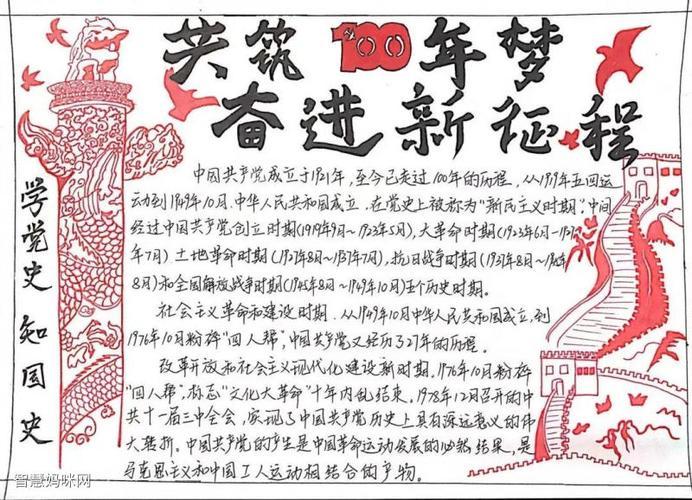 共筑100年梦
奋进新征程
学党史 知国史
中国共产党成立于1921年,至今已走过100年的历程,从1919年五四运
动到1949年10月,中华人民共和国成立,在党史上被称为"新民主义时期",中间
经过中国共产党创立时期(1919年9月~1923年5月),大革命时期(1923年6月~1927
年7月)土地革命时期(1927年8月~1937年7月),抗日战争时期(1937年8月~
8月)和全国解放战争时期(1945年8月~1949年10月)五个历史时期。
社会主义革命和建设时期,从1949年10月中华人民共和国成立,到
1976年10月粉碎"四人帮",中国共产党又经历了27年的历程。
改革开放和社会主义现代化建设新时期,1976年10月粉碎
"四人帮",标志"文化大革命"十年内乱结束,1978年12月召开的中
共十一届三中全会,实现了中国共产党历史上具有深远意义的伟
大转折。中国共产党的产生是中国革命运动发展的必然结果,是
马克思主义和中国工人运动相结合的产物。
智慧妈咪网